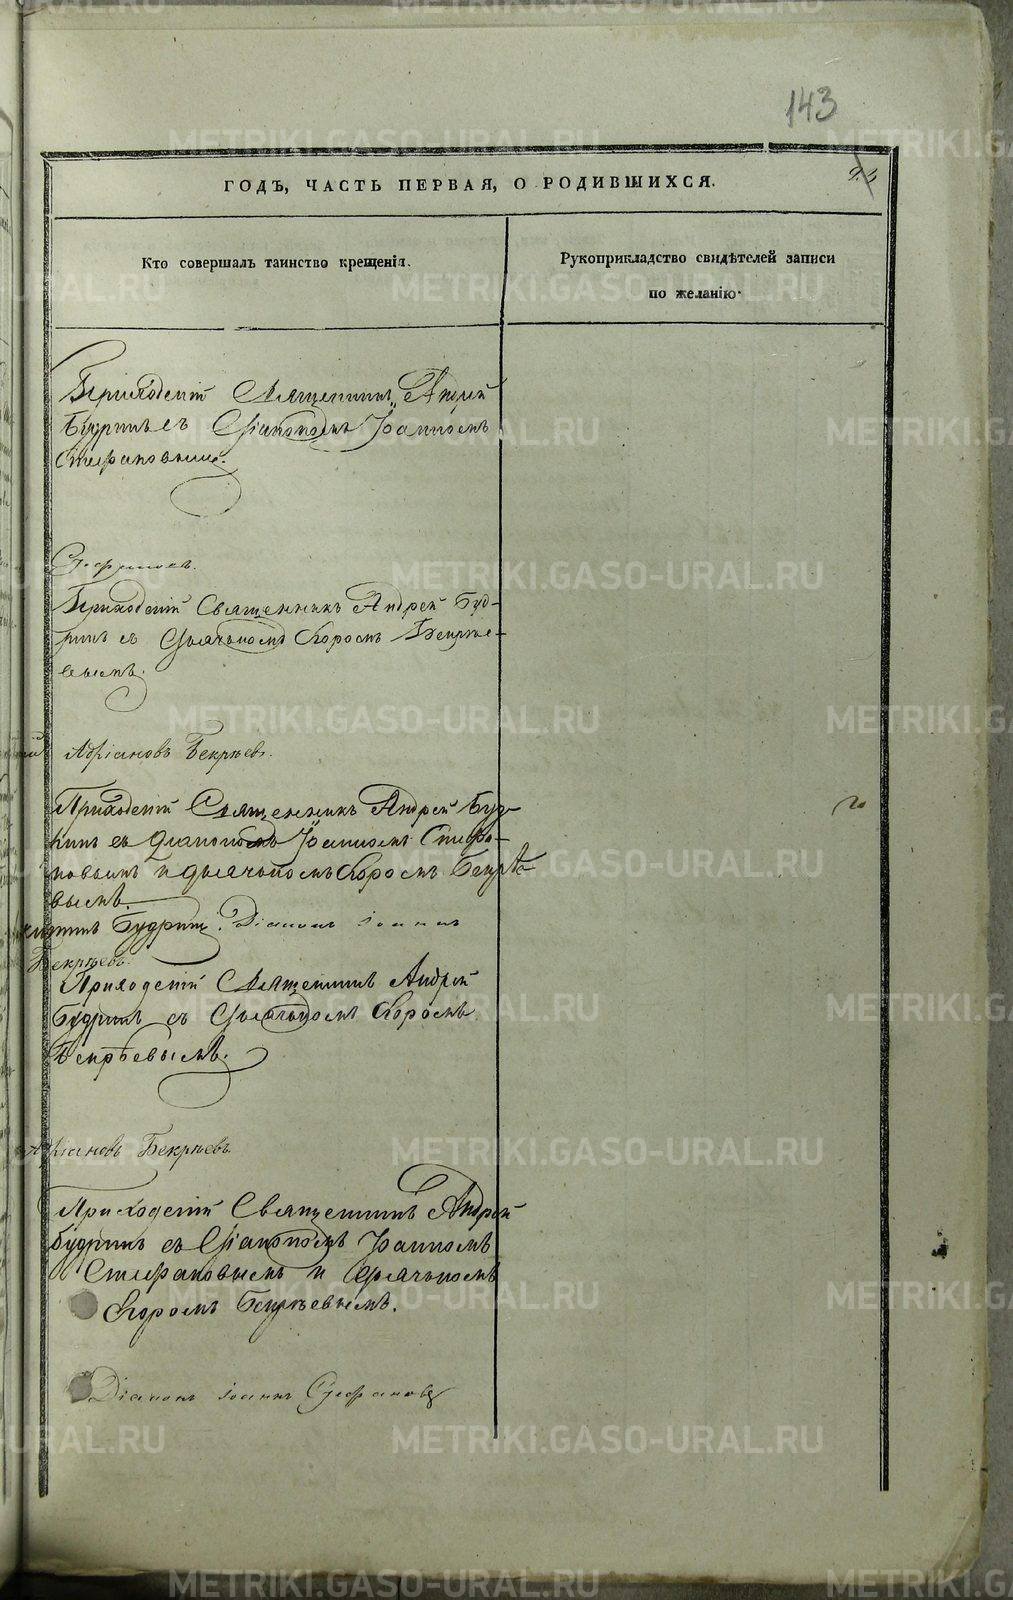 143
ГОДЪ, ЧАСТЬ ПЕРВАЯ, О РОДИВШИХСЯ.
Кто совершалъ таинство крещенія.
Рукоприкладство свидѣтелей записи
по желанію.
Приходскій Священникъ Андрей
Будринъ съ Діакономъ Іоанномъ
Стефановымъ.
Стефановъ.
Приходскій Священникъ Андрей Буд-
ринъ съ Дьячкомъ Егоромъ Бекрѣе-
вымъ.
Адріановъ Бекрѣевъ.
Приходскій Священникъ Андрей Буд-
ринъ съ Діакономъ Іоанномъ Стефа-
новымъ и дьячкомъ Егоромъ Бекрѣе-
вымъ.
Будринъ. Діаконъ Іоаннъ
Бекрѣевъ.
Приходскій Священникъ Андрей
Будринъ съ Дьячкомъ Егоромъ
Бекрѣевымъ.
Адріановъ Бекрѣевъ.
Приходскій Священникъ Андрей
Будринъ съ Діакономъ Іоанномъ
Стефановымъ и Дьячкомъ
Егоромъ Бекрѣевымъ.
Діаконъ Іоаннъ Стефановъ
METRIKI.GASO-URAL.RU